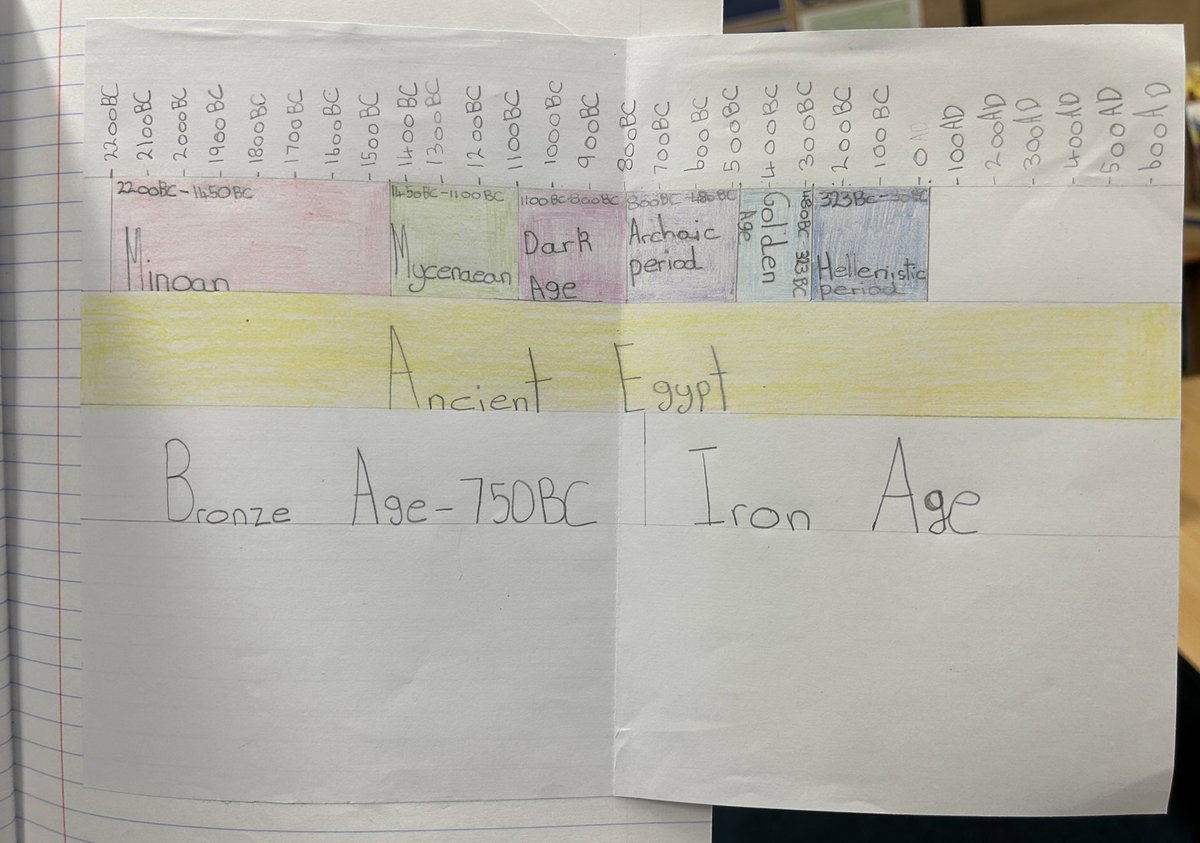 -2200BC
-2100BC
-2000BC
-1900BC
-1800BC
-1700BC
-1600BC
-1500BC
-1400BC
-1300BC
-1200BC
-1100BC
-1000BC
-900BC
-800BC
-700BC
-600BC
-500BC
-400BC
-300BC
-200BC
-100BC
-0AD
-100AD
-200AD
-300AD
-400AD
-500AD
-600AD
2200BC-1450BC
Minoan
1450BC-1100BC
Mycenaean
1100BC-800BC
Dark
Age
800BC-480BC
Archaic
period
Golden
Age
480BC 323BC
323BC-30BC
Hellenistic
period
Ancient Egypt
Bronze Age-750BC
Iron Age